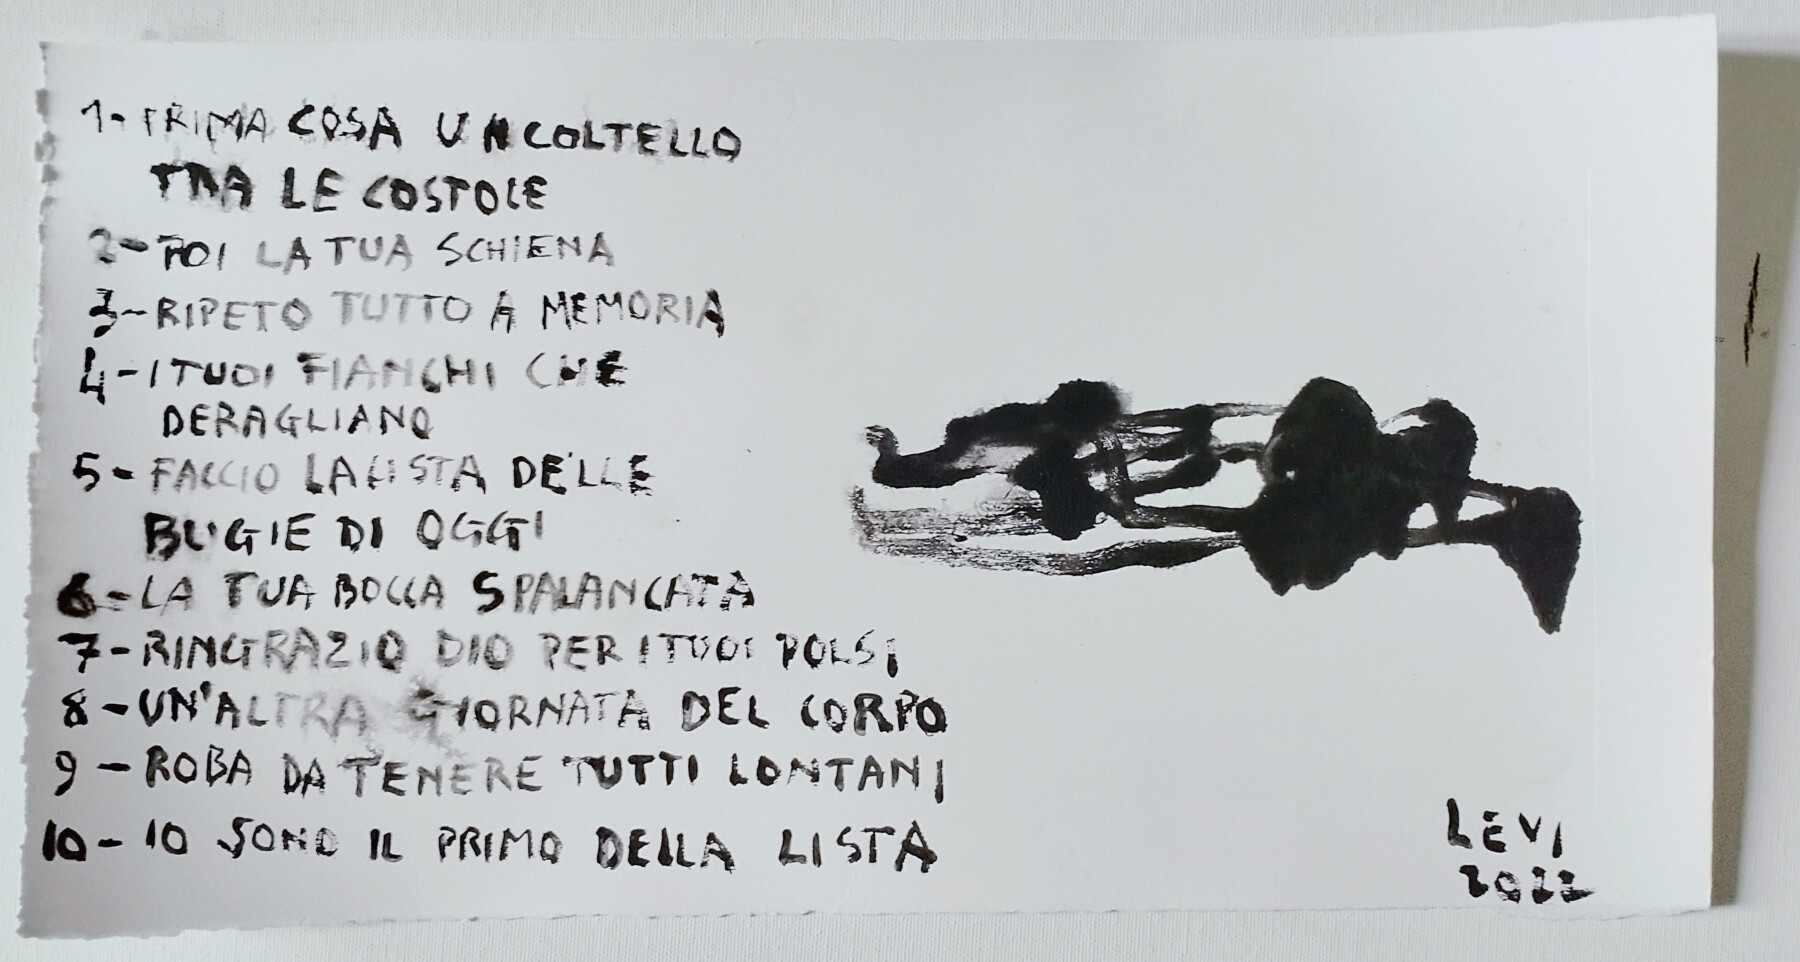 1- PRIMA COSA UN COLTELLO
TRA LE COSTOLE
2- POI LA TUA SCHIENA
3- RIPETO TUTTO A MEMORIA
4- I TUOI FIANCHI CHE
DERAGLIANO
5- FACCIO LA LISTA DELLE
BUGIE DI OGGI
6- LA TUA BOCCA SPALANCATA
7- RINGRAZIO DIO PER I TUOI POLSI
8- UN'ALTRA GIORNATA DEL CORPO
9- ROBA DA TENERE TUTTI LONTANI
10- IO SONO IL PRIMO DELLA LISTA
LEVI
2022